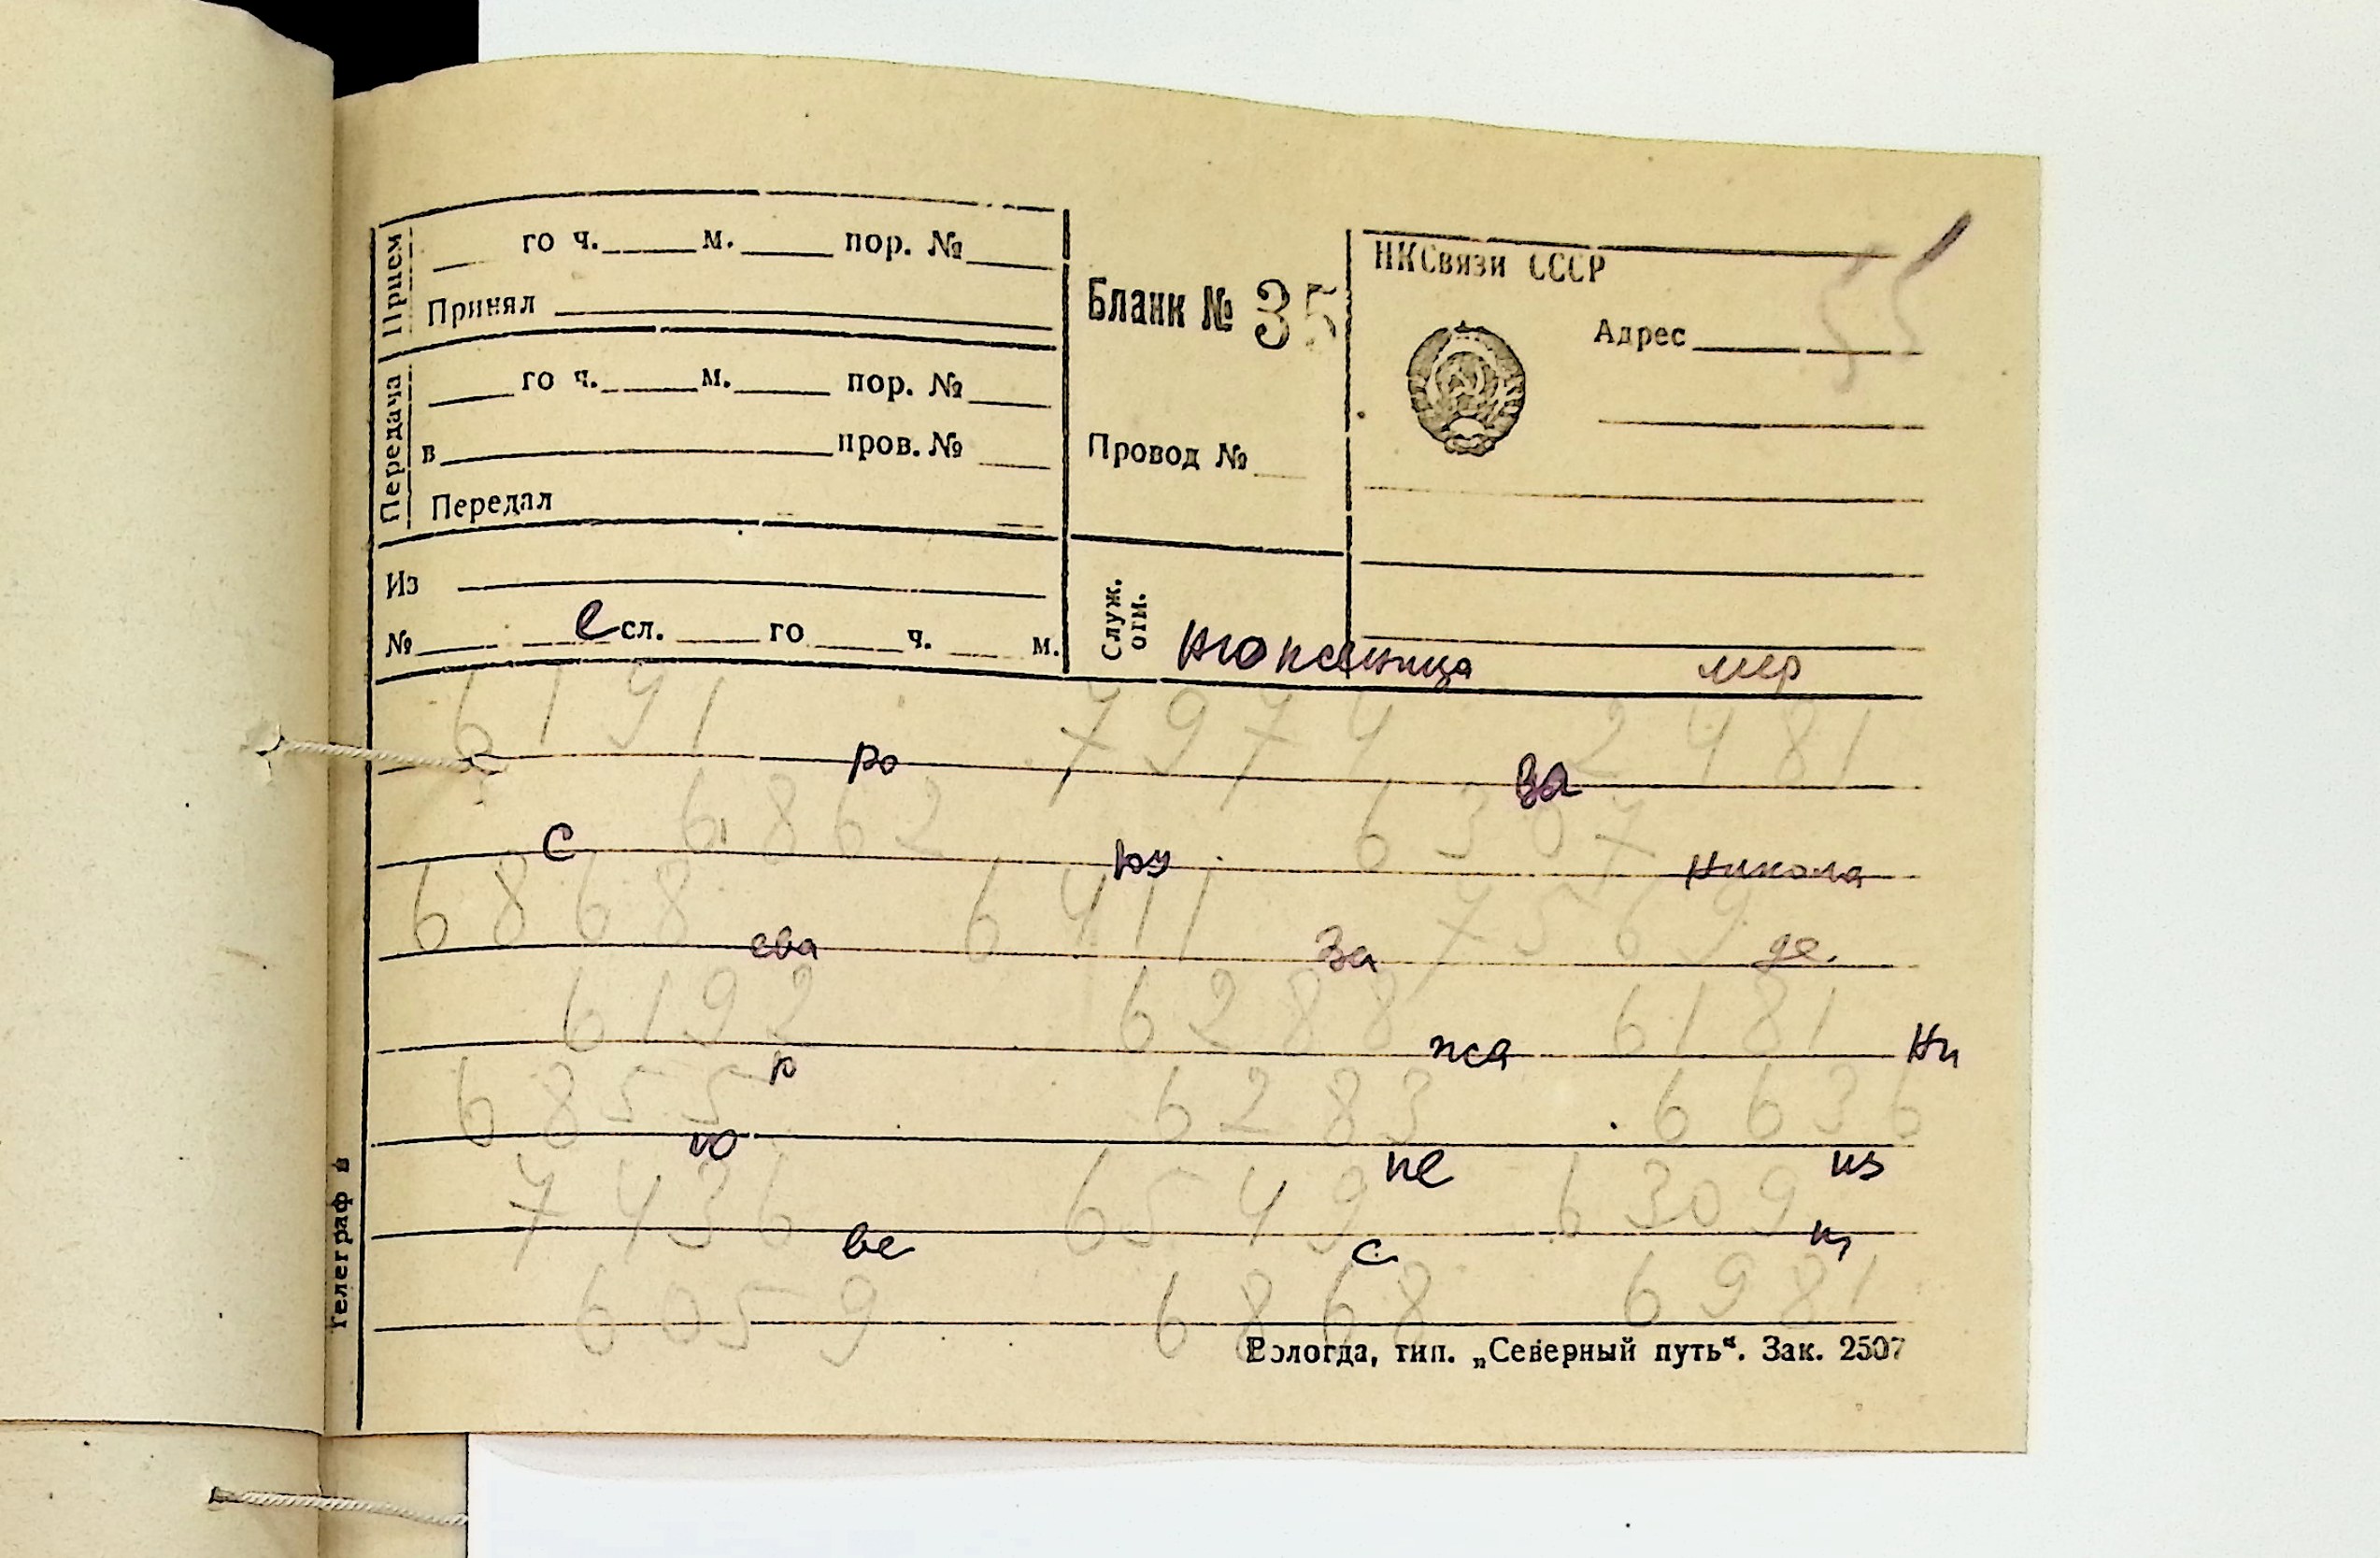 Прием
го ч. м. пор. №
Принял
Передача
го ч. м. пор. №
в пров. №
Передал
Из
№ е сл. го ч. м.
Бланк № 35
Провод №
Служ. отм.
НКСвязи СССР
Адрес
55
Нюксеница мер
6191 7974 2481
ро ва
6862 6307
с ку Никола
6868 6411 7569
ева За де
6192 6288 6181
р жа Ни
6855 6283 6636
ю не из
7436 6549 6309
ве с т
6059 6868 6981
Телеграф в
Вологда, тип. „Северный путь“. Зак. 2507